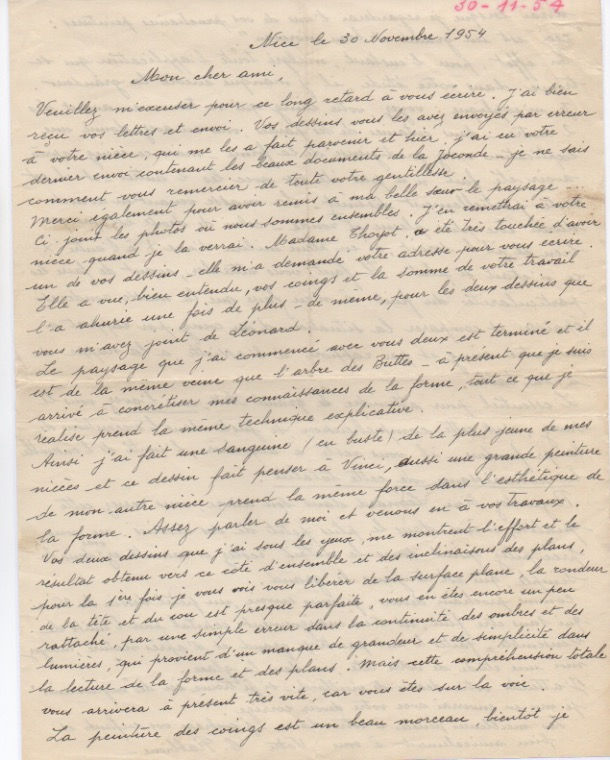 30-11-54
Nice le 30 Novembre 1954
Mon cher ami,
Veuillez m'excuser pour ce long retard à vous écrire. J'ai bien
reçu vos lettres et envoi. Vos dessins vous les avez envoyés par erreur
à votre nièce, qui me les a fait parvenir et hier, j'ai eu votre
dernier envoi contenant les beaux documents de la Joconde - je ne sais
comment vous remercier de toute votre gentillesse.
Merci également pour avoir remis à ma belle sœur le paysage ...
Ci-joint les photos où nous sommes ensembles. J'en remettrai à votre
nièce quand je la verrai. Madame a été très touchée d'avoir
un de vos dessins - elle m'a demandé votre adresse pour vous écrire.
Elle a vue, bien entendu, vos coings et la somme de votre travail
l'a ahurie une fois de plus - de même, pour les deux dessins que
vous m'avez joint de Léonard.
Le paysage que j'ai commencé avec vous deux est terminé et il
est de la même veine que l'arbre des Buttes - à présent que je suis
arrivé à concrétiser mes connaissances de la forme, tout ce que je
réalise prend la même technique explicative.
Ainsi j'ai fait une sanguine (en buste) de la plus jeune de mes
nièces et ce dessin fait penser à Vinci, aussi une grande peinture
de mon autre nièce prend la même force dans l'esthétique de
la forme. Assez parler de moi et venons en à vos travaux.
Vos deux dessins que j'ai sous les yeux, me montrent l'effort et le
résultat obtenu vers ce côté d'ensemble et des inclinaisons des plans,
pour la 1ère fois je vous vois vous libérer de la surface plane, la rondeur
de la tête et du cou est presque parfaite, vous en êtes encore un peu
rattaché, par une simple erreur dans la continuité des ombres et des
lumières, qui provient d'un manque de grandeur et de simplicité dans
la lecture de la forme et des plans. Mais cette compréhension totale
vous arrivera à présent très vite, car vous êtes sur la voie.
La peinture des coings est un beau morceau, bientôt je